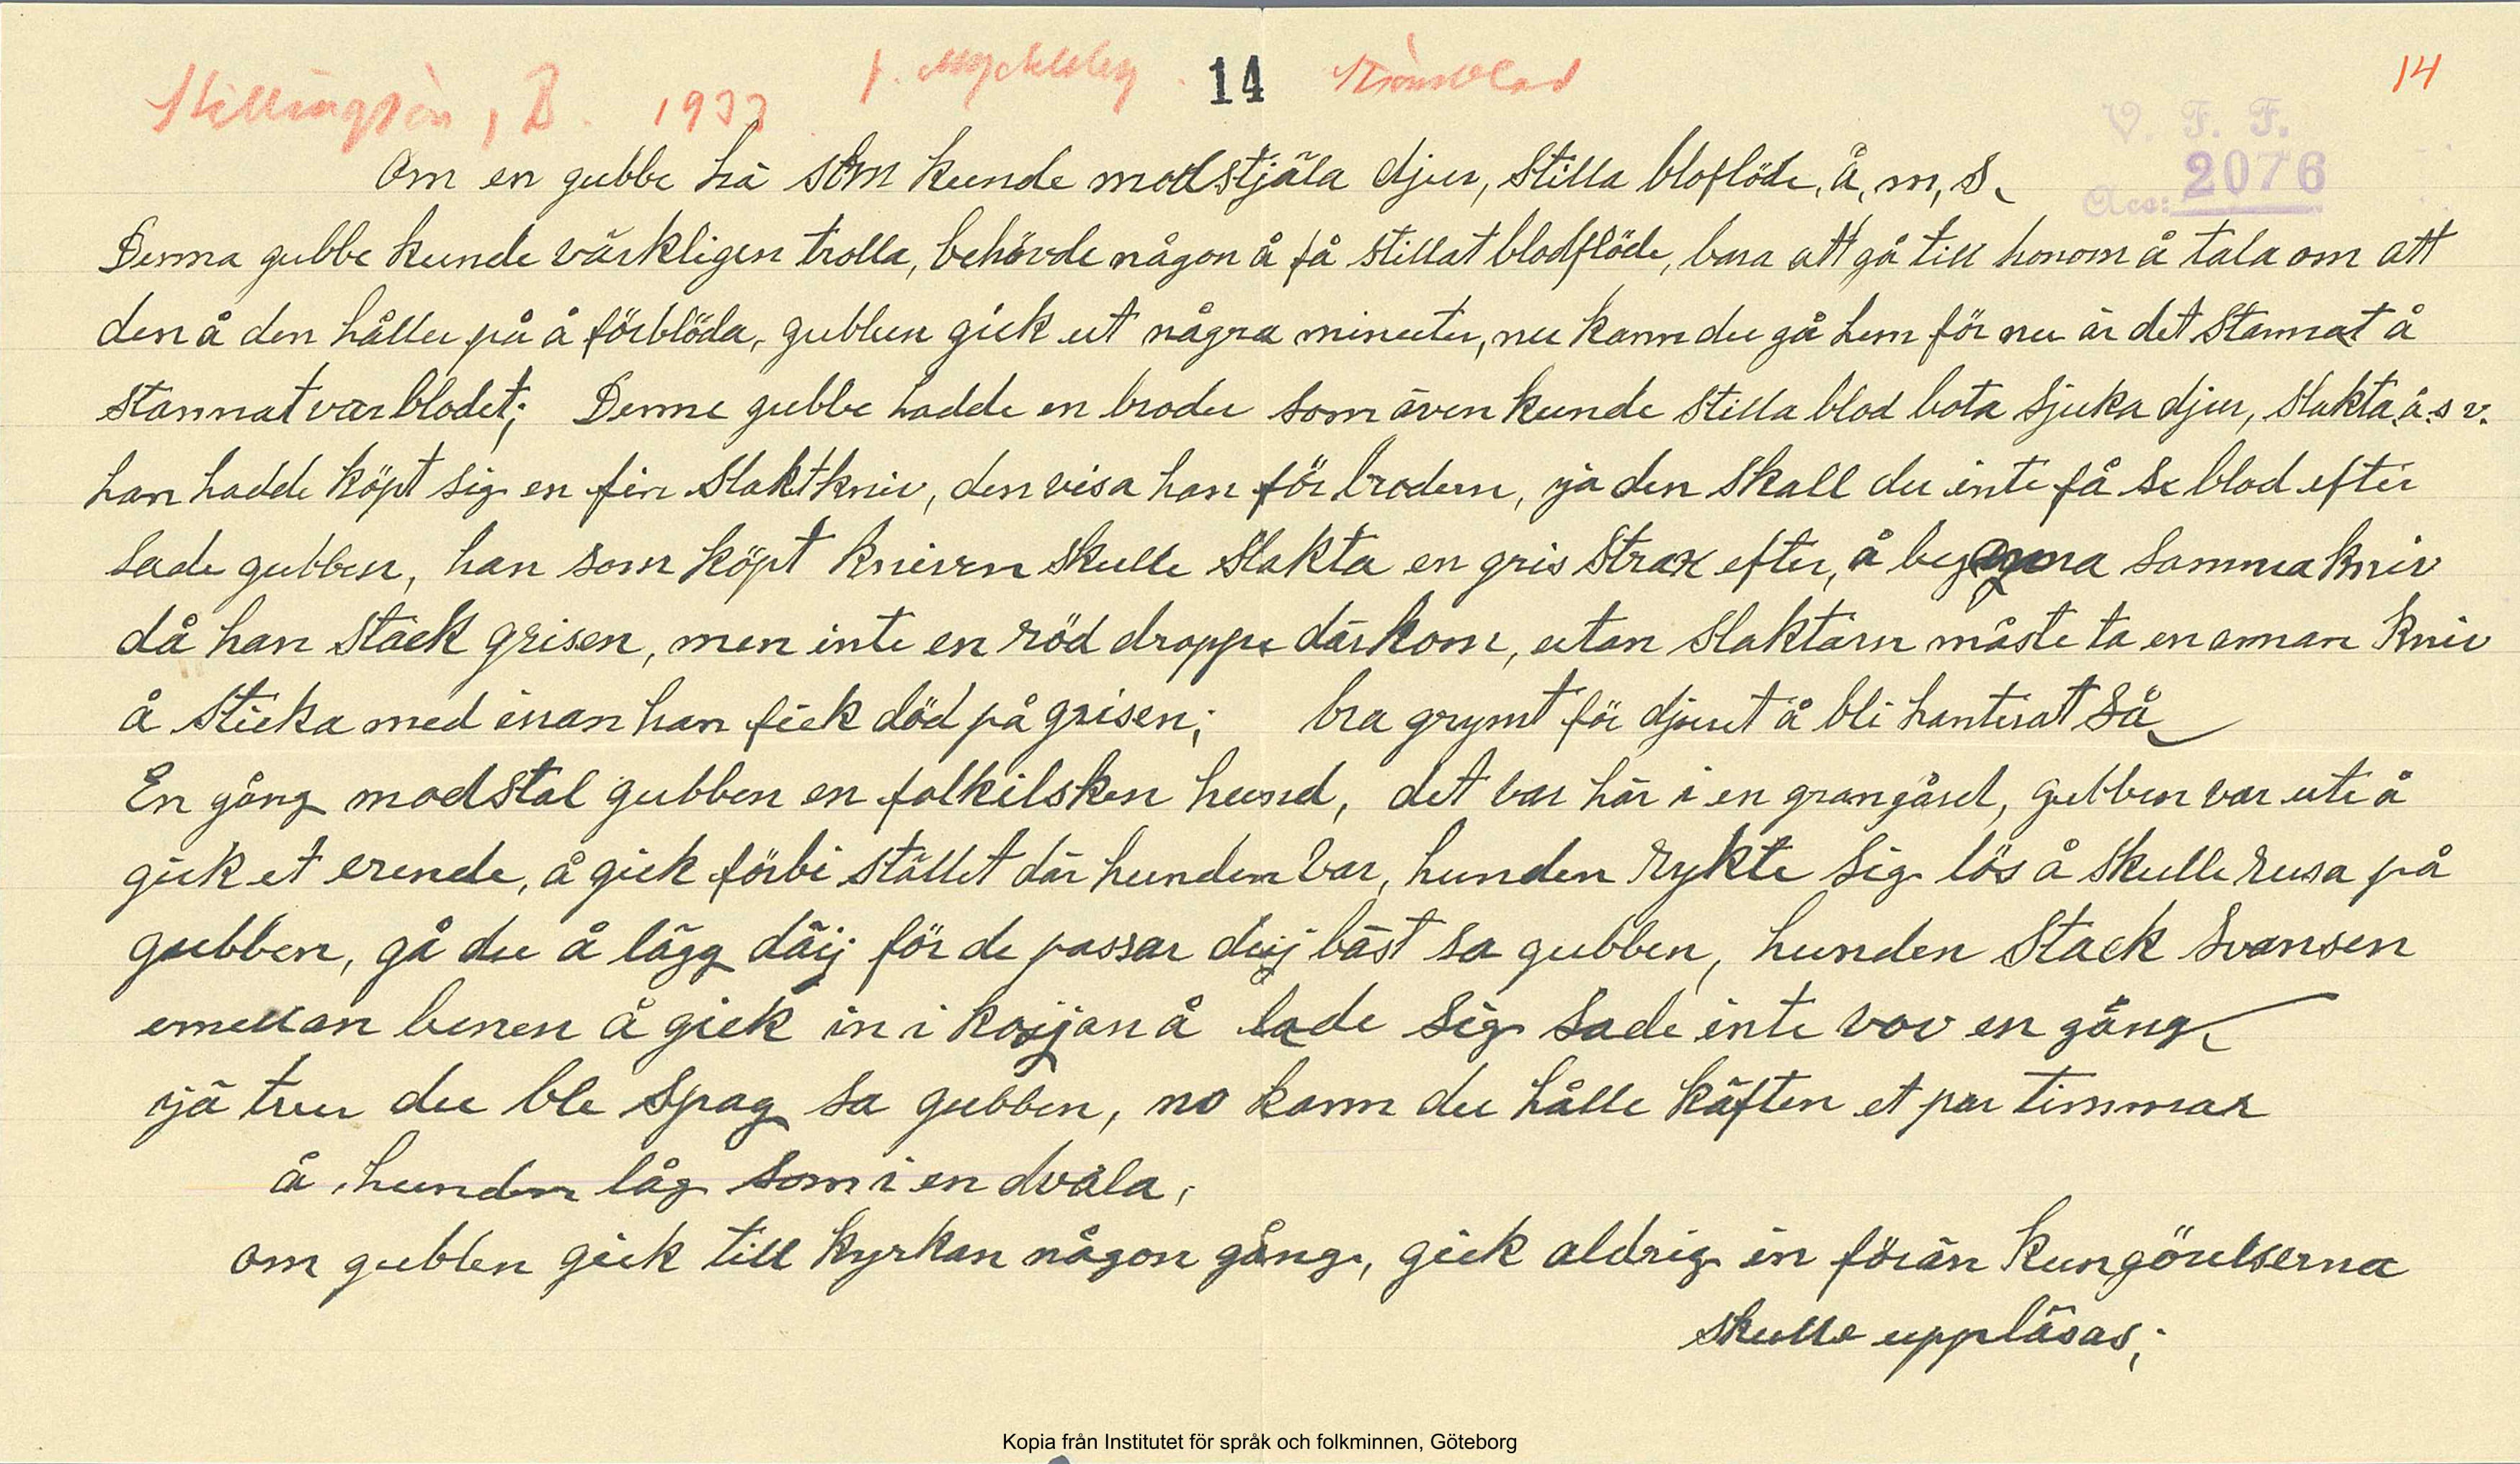 Stillingsön, B. 1933 f. Myckleby. 14 Strömblad 14
V. F. F.
Acc: 2076
Om en gubbe hä som kunde modstjäla djur, stilla bloflöde, å, m, s.
Denna gubbe kunde värkligen trolla, behövde någon å få stillat blodflöde, bara att gå till honom å tala om att
den å den håller på å förblöda, gubben gick ut några minuter, nu kann du gå hem för nu är det stannat å
stannat var blodet; Denne gubbe hadde en broder som även kunde stilla blod bota sjuka djur, slakta å.s v.
han hadde köpt sig en fin slaktkniv, den visa han för brodern, ja den skall du inte få se blod efter
sade gubben, han som köpt kniven skulle slakta en gris strax efter, å begagna samma kniv
då han stack grisen, men inte en röd droppe därkom, utan slaktarn måste ta en annan kniv
å sticka med inan han fick död på grisen; bra grymt för djuret å bli hanterat så
En gång modstal gubben en folkilsken hund, det var här i en grangård, gubben var ute å
gick et erende, å gick förbi stället där hunden var, hunden rykte sig lös å skulle rusa på
gubben, gå du å lägg däij för de passar däij bäst sa gubben, hunden stack svansen
emellan benen å gick in i kojjan å lade sig sade inte vov en gång
jä trur du ble spag sa gubben, no kann du hålle käften et par timmar
å hunden låg som i en dvala,
om gubben gick till kyrkan någon gång, gick aldrig in förän kungörelserna
skulle uppläsas;
Kopia från Institutet för språk och folkminnen, Göteborg